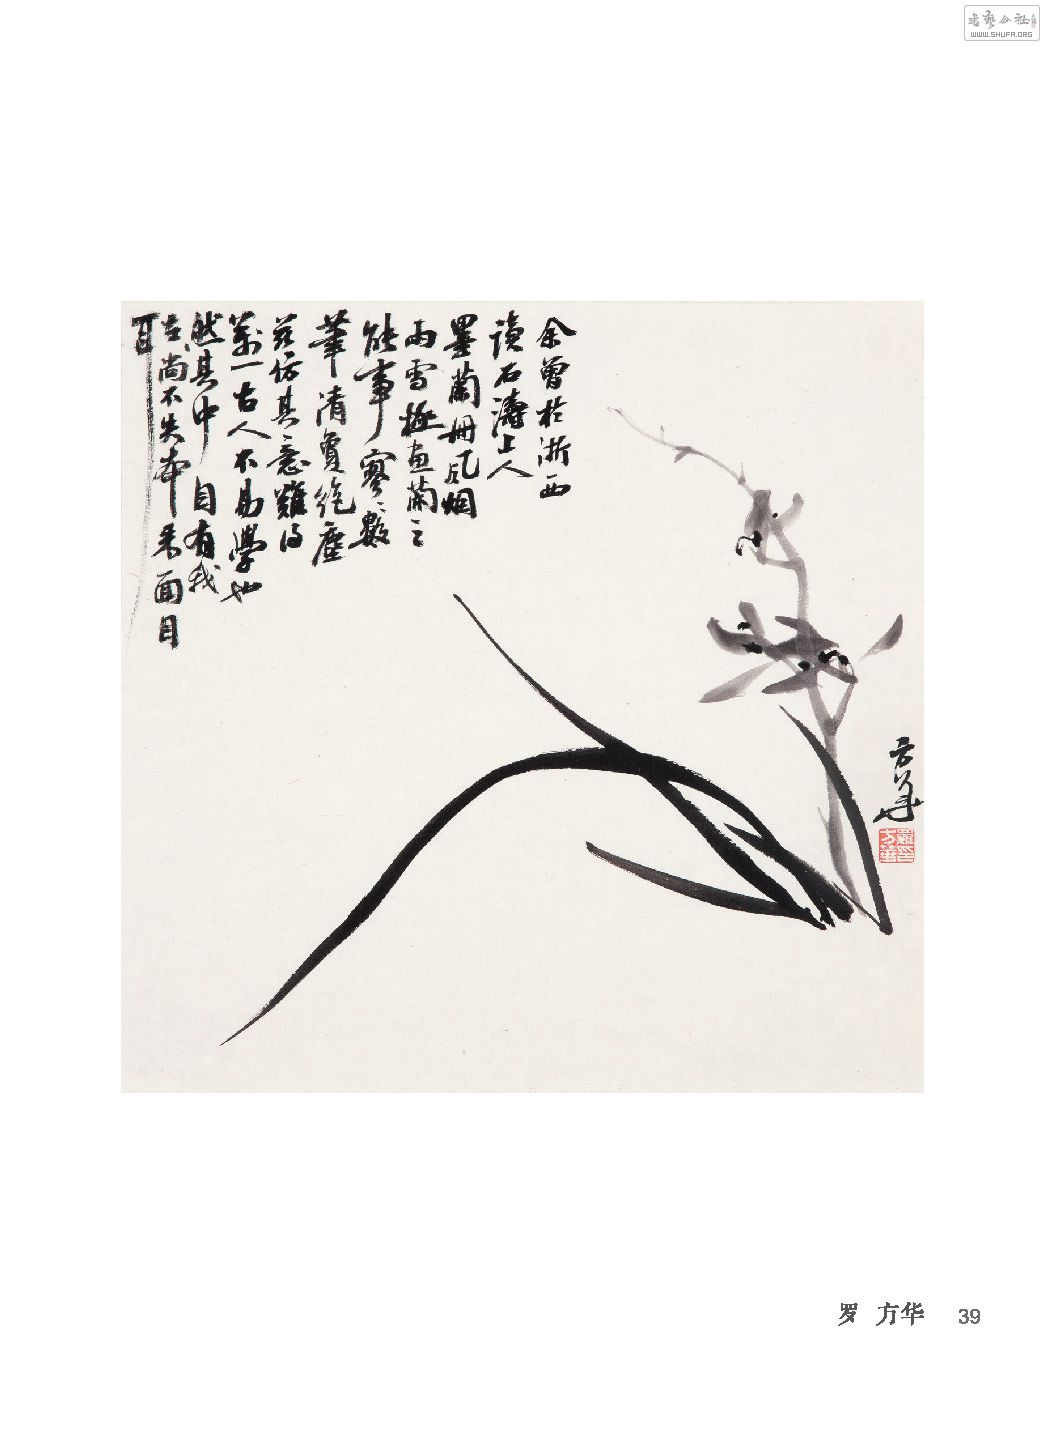 書藝公社
WWW.SHUFA.ORG
余曾於浙西
讀石濤上人
墨蘭冊風烟
雨雪極畫蘭之
能事寥寥數
筆清負絕塵
茲仿其意難得
萬一古人不易學也
然其中自有我
在尚不失本来面目
耳
方華
羅方華印
罗 方华 39